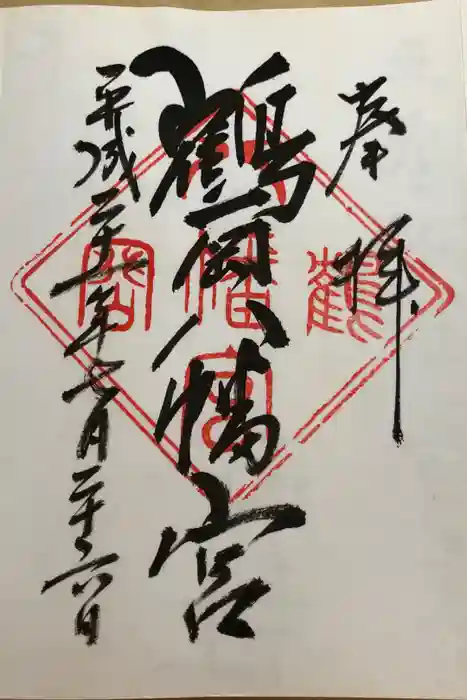 奉拝
鶴岡八幡宮
平成二十一年七月二十六日
鶴岡八幡宮